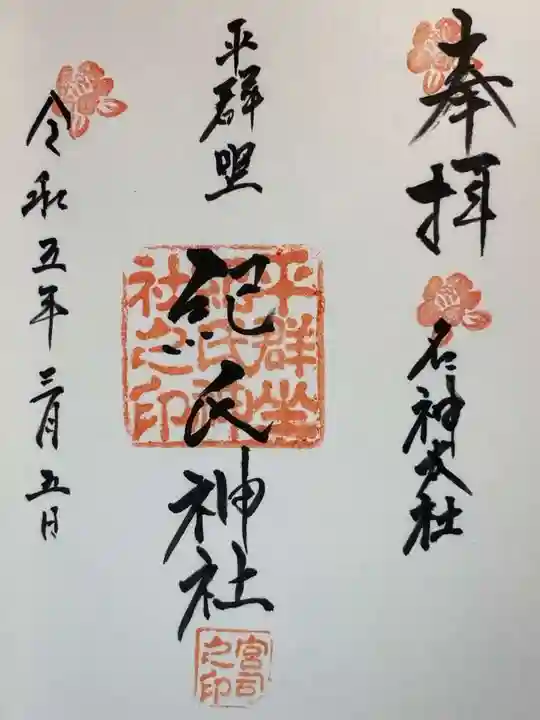 奉拝
名神大社
平群坐
紀氏神社
令和五年三月五日
平群坐
紀氏神
社之印
宮司
之印